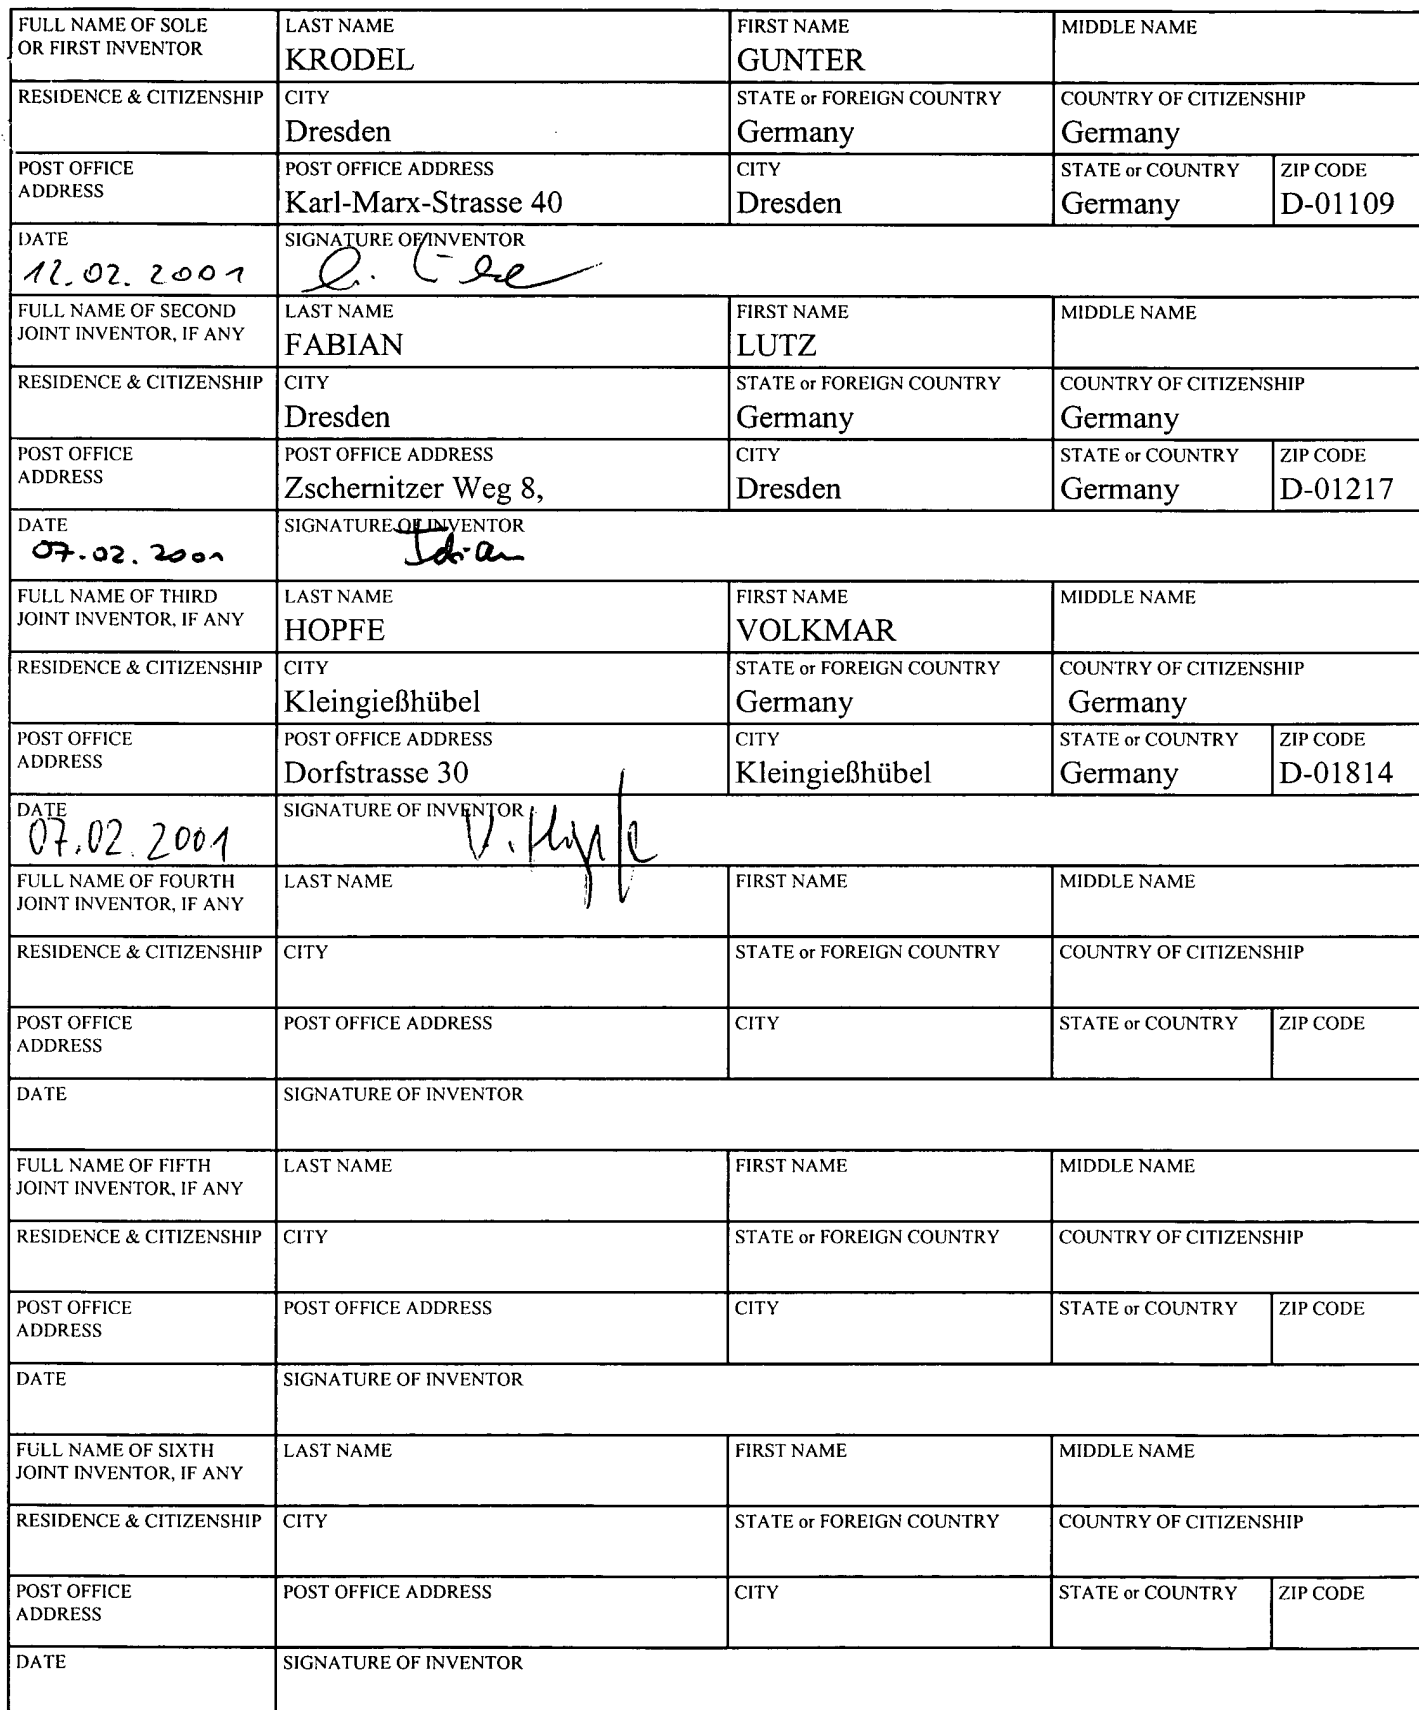 FULL NAME OF SOLE OR FIRST INVENTOR LAST NAME KRODEL FIRST NAME GUNTER MIDDLE NAME
RESIDENCE & CITIZENSHIP CITY Dresden STATE or FOREIGN COUNTRY Germany COUNTRY OF CITIZENSHIP Germany
POST OFFICE ADDRESS POST OFFICE ADDRESS Karl-Marx-Strasse 40 CITY Dresden STATE or COUNTRY Germany ZIP CODE D-01109
DATE 12.02.2001 SIGNATURE OF INVENTOR
FULL NAME OF SECOND JOINT INVENTOR, IF ANY LAST NAME FABIAN FIRST NAME LUTZ MIDDLE NAME
RESIDENCE & CITIZENSHIP CITY Dresden STATE or FOREIGN COUNTRY Germany COUNTRY OF CITIZENSHIP Germany
POST OFFICE ADDRESS POST OFFICE ADDRESS Zschernitzer Weg 8, CITY Dresden STATE or COUNTRY Germany ZIP CODE D-01217
DATE 07.02.2001 SIGNATURE OF INVENTOR
FULL NAME OF THIRD JOINT INVENTOR, IF ANY LAST NAME HOPFE FIRST NAME VOLKMAR MIDDLE NAME
RESIDENCE & CITIZENSHIP CITY Kleingießhübel STATE or FOREIGN COUNTRY Germany COUNTRY OF CITIZENSHIP Germany
POST OFFICE ADDRESS POST OFFICE ADDRESS Dorfstrasse 30 CITY Kleingießhübel STATE or COUNTRY Germany ZIP CODE D-01814
DATE 07.02.2001 SIGNATURE OF INVENTOR V. Hopfe
FULL NAME OF FOURTH JOINT INVENTOR, IF ANY LAST NAME FIRST NAME MIDDLE NAME
RESIDENCE & CITIZENSHIP CITY STATE or FOREIGN COUNTRY COUNTRY OF CITIZENSHIP
POST OFFICE ADDRESS POST OFFICE ADDRESS CITY STATE or COUNTRY ZIP CODE
DATE SIGNATURE OF INVENTOR
FULL NAME OF FIFTH JOINT INVENTOR, IF ANY LAST NAME FIRST NAME MIDDLE NAME
RESIDENCE & CITIZENSHIP CITY STATE or FOREIGN COUNTRY COUNTRY OF CITIZENSHIP
POST OFFICE ADDRESS POST OFFICE ADDRESS CITY STATE or COUNTRY ZIP CODE
DATE SIGNATURE OF INVENTOR
FULL NAME OF SIXTH JOINT INVENTOR, IF ANY LAST NAME FIRST NAME MIDDLE NAME
RESIDENCE & CITIZENSHIP CITY STATE or FOREIGN COUNTRY COUNTRY OF CITIZENSHIP
POST OFFICE ADDRESS POST OFFICE ADDRESS CITY STATE or COUNTRY ZIP CODE
DATE SIGNATURE OF INVENTOR